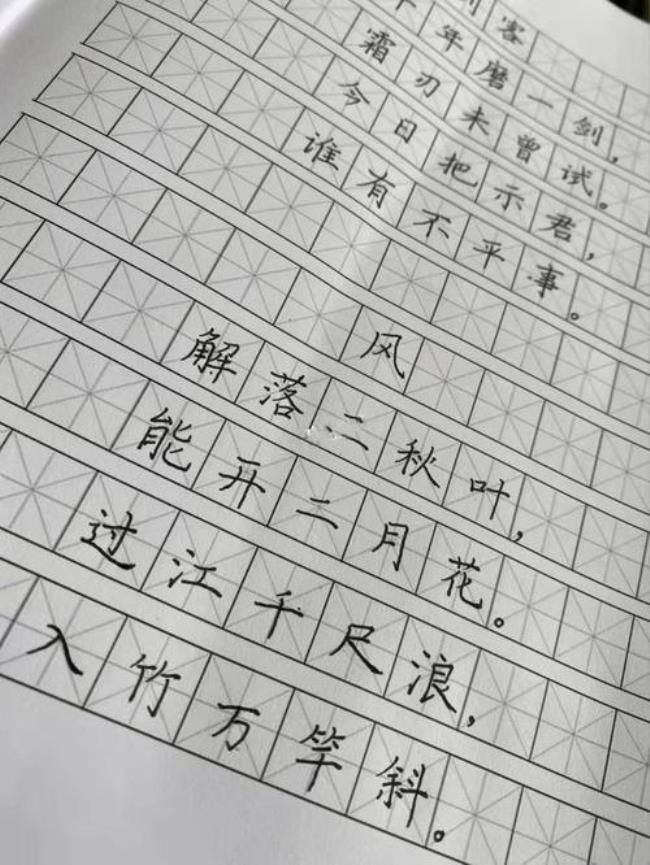 客
十年磨一剑,
霜刃未曾试。
今日把示君,
谁有不平事。
风
解落二秋叶,
能开二月花。
过江千尺浪,
入竹万竿斜。